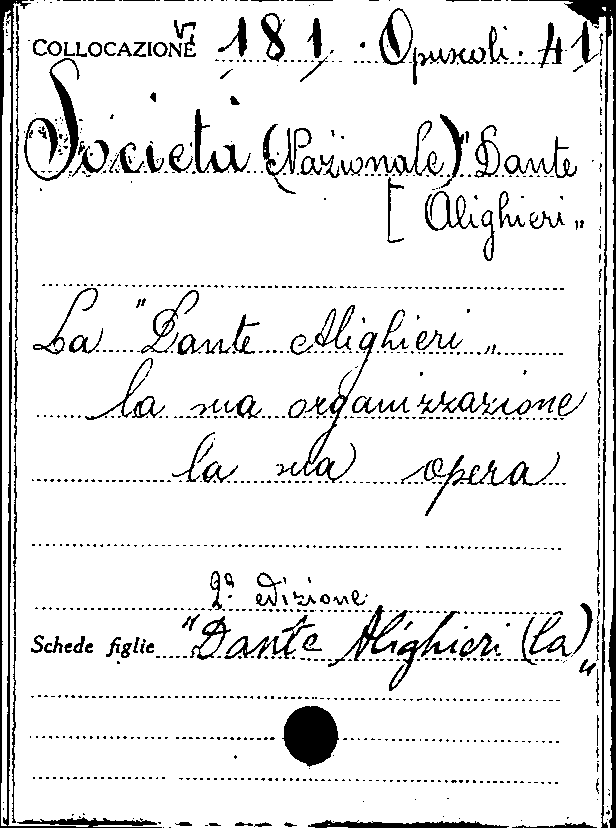 COLLOCAZIONE VI 181. Opuscoli. 41
Società (Nazionale) "Dante
[Alighieri„
La "Dante Alighieri„
la sua organizzazione
la sua opera
2ª edizione
Schede figlie "Dante Alighieri (la)„